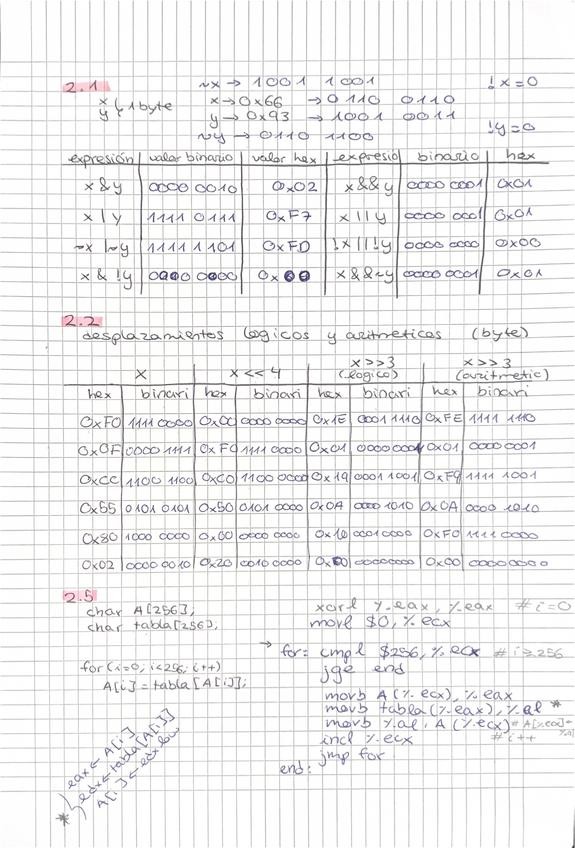 2.1
~x → 1001 1001
!x=0
x
y } 1byte
x → 0x66 → 0110 0110
y → 0x93 → 1001 0011
~y → 0110 1100
!y=0
expresión | valor binario | valor hex | expresio | binario | hex
x & y | 0000 0010 | 0x02 | x && y | 0000 0001 | 0x01
x | y | 1111 0111 | 0xF7 | x || y | 0000 0001 | 0x01
~x | ~y | 1111 1101 | 0xFD | !x || !y | 0000 0000 | 0x00
x & !y | 0000 0000 | 0x00 | x && ~y | 0000 0001 | 0x01
2.2
desplazamientos logicos y aritmeticos (byte)
x | x << 4 | x >> 3 (logico) | x >> 3 (aritmetic)
hex | binari | hex | binari | hex | binari | hex | binari
0xF0 | 1111 0000 | 0x00 | 0000 0000 | 0x1E | 0001 1110 | 0xFE | 1111 1110
0x0F | 0000 1111 | 0xF0 | 1111 0000 | 0x01 | 0000 0001 | 0x01 | 0000 0001
0xCC | 1100 1100 | 0xC0 | 1100 0000 | 0x19 | 0001 1001 | 0xF9 | 1111 1001
0x55 | 0101 0101 | 0x50 | 0101 0000 | 0x0A | 0000 1010 | 0x0A | 0000 1010
0x80 | 1000 0000 | 0x00 | 0000 0000 | 0x10 | 0001 0000 | 0xF0 | 1111 0000
0x02 | 0000 0010 | 0x20 | 0010 0000 | 0x00 | 0000 0000 | 0x00 | 0000 0000
2.5
char A[256];
char tabla[256];
for (i=0; i<256; i++)
A[i] = tabla[A[i]];
eax ← A[i]
edx ← tabla[A[i]]
A[i] ← edx low
*
xorl %eax, %eax # i=0
movl $0, %ecx
→ for: cmpl $256, %ecx # i≥256
jge end
movb A(%ecx), %eax
movb tabla(%eax), %al *
movb %al, A(%ecx) # A[%ecx]=%al
incl %ecx # i++
jmp for
end: